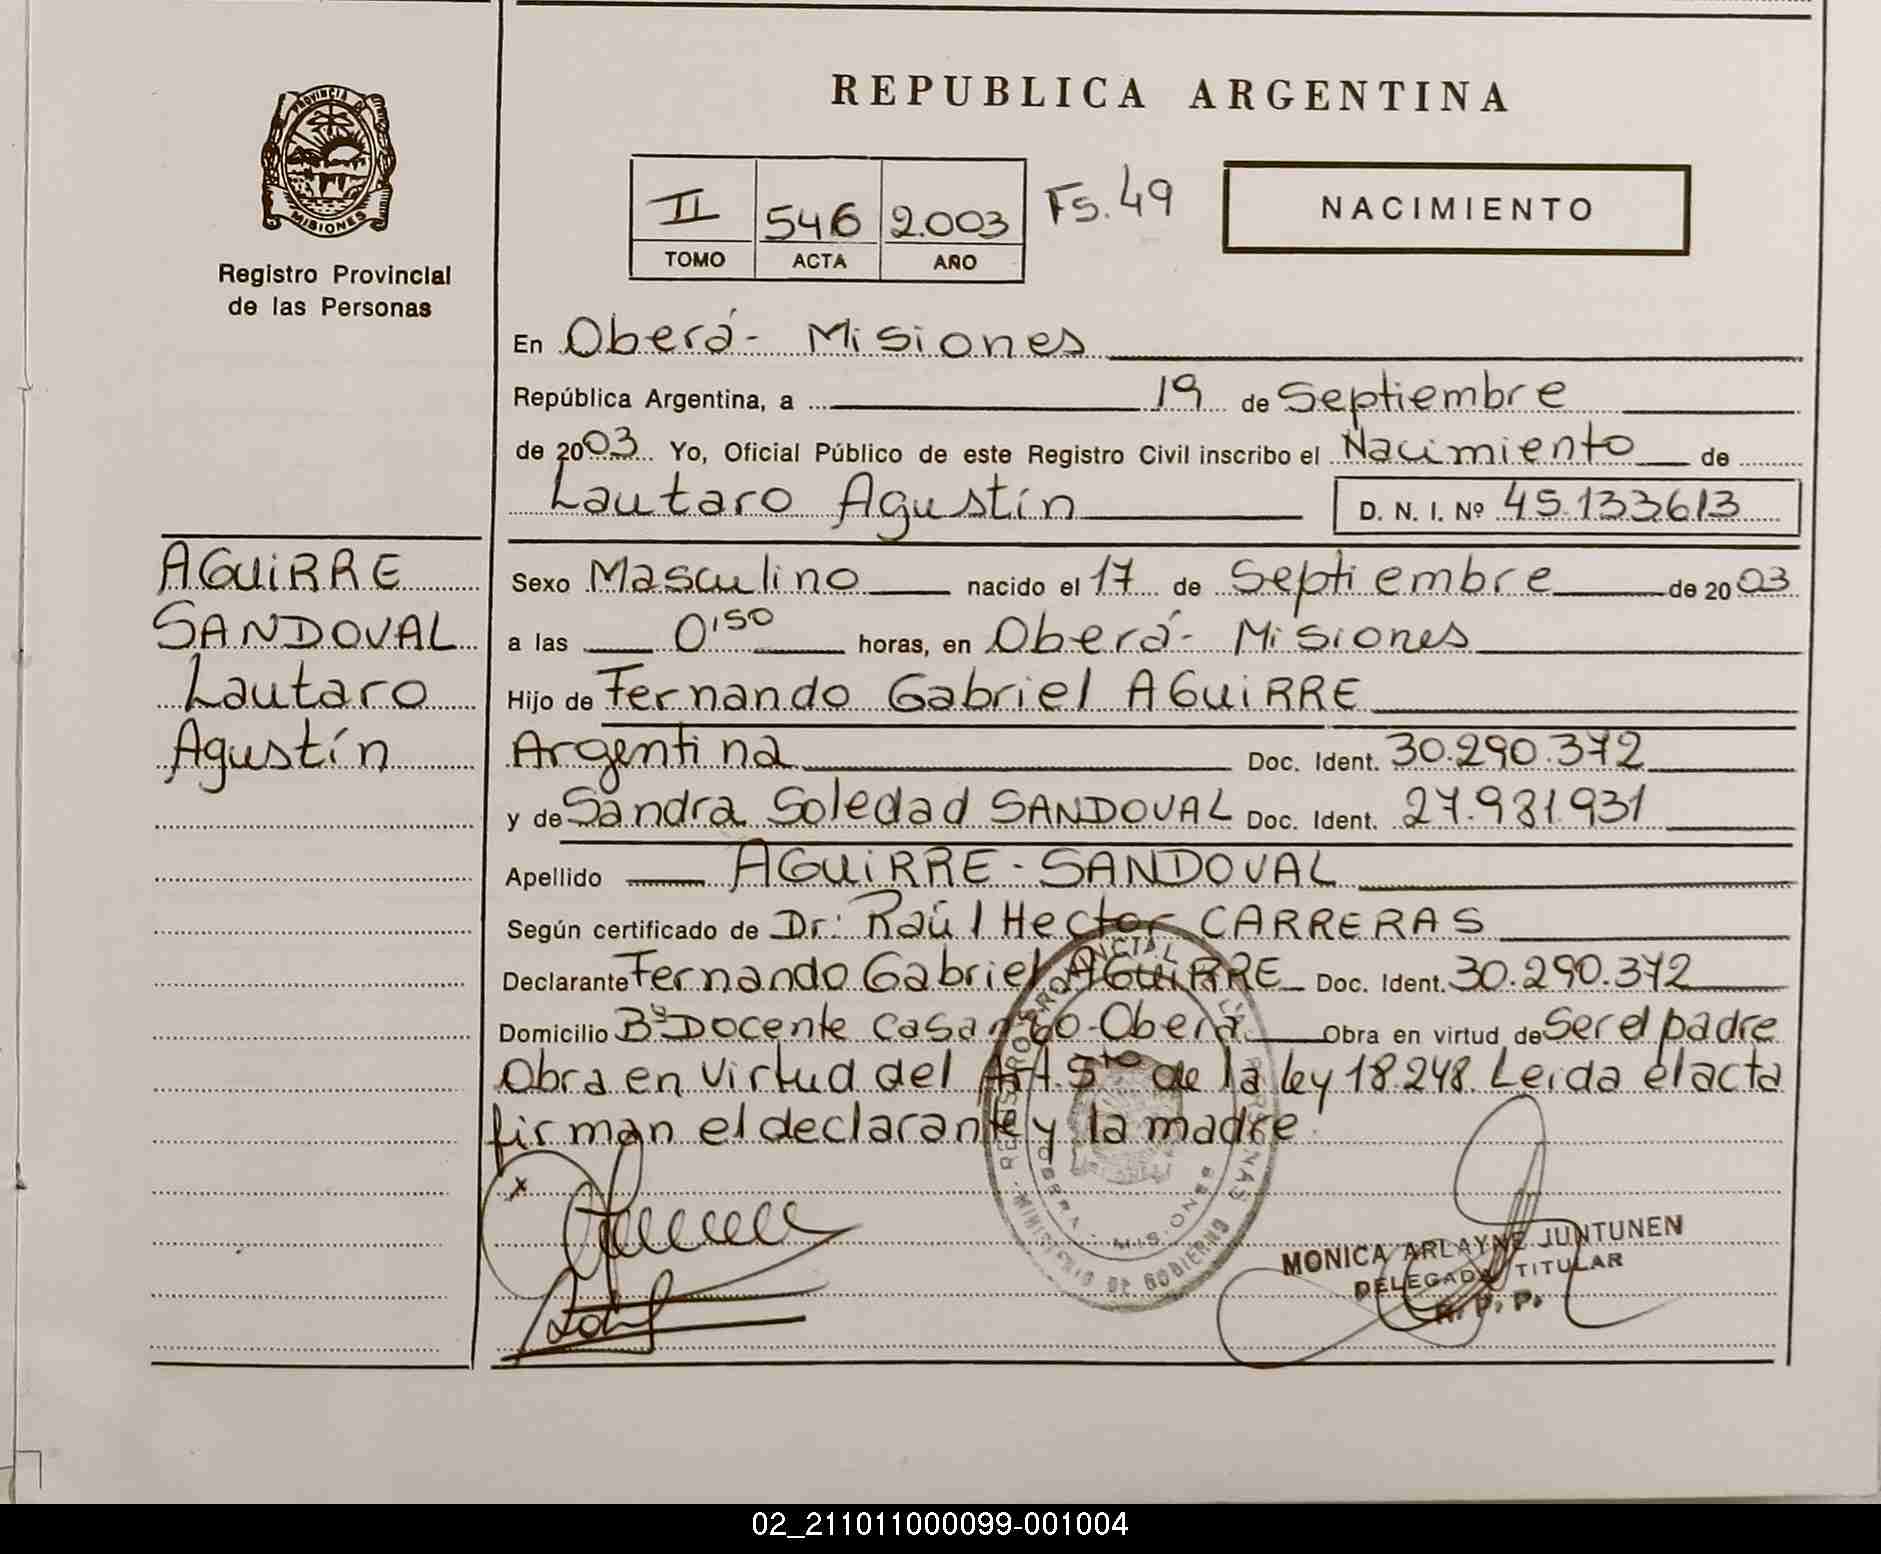 REPUBLICA ARGENTINA
PROVINCIA DE
MISIONES
Registro Provincial
de las Personas
II 546 2.003 Fs. 49
TOMO ACTA AÑO
NACIMIENTO
En Oberá - Misiones
República Argentina, a 19 de Septiembre
de 2003 Yo, Oficial Público de este Registro Civil inscribo el Nacimiento de
Lautaro Agustín D. N. I. Nº 45.133.613
AGUIRRE
SANDOVAL
Lautaro
Agustín
Sexo Masculino nacido el 17 de Septiembre de 2003
a las 0'50 horas, en Oberá - Misiones
Hijo de Fernando Gabriel AGUIRRE
Argentina Doc. Ident. 30.290.372
y de Sandra Soledad SANDOVAL Doc. Ident. 27.981.931
Apellido AGUIRRE - SANDOVAL
Según certificado de Dr: Raúl Hector CARRERAS
Declarante Fernando Gabriel AGUIRRE Doc. Ident. 30.290.372
Domicilio Bº Docente Casa - Oberá Obra en virtud de Ser el padre
Obra en virtud del Art. 5to de la ley 18.248. Leida el acta
firman el declarante y la madre.
REGISTRO PROVINCIAL PERSONAS
OBERA - MISIONES
MINISTERIO DE GOBIERNO
MONICA ARLAYNE JUNTUNEN
DELEGADA TITULAR
R. P. P.
02_211011000099-001004